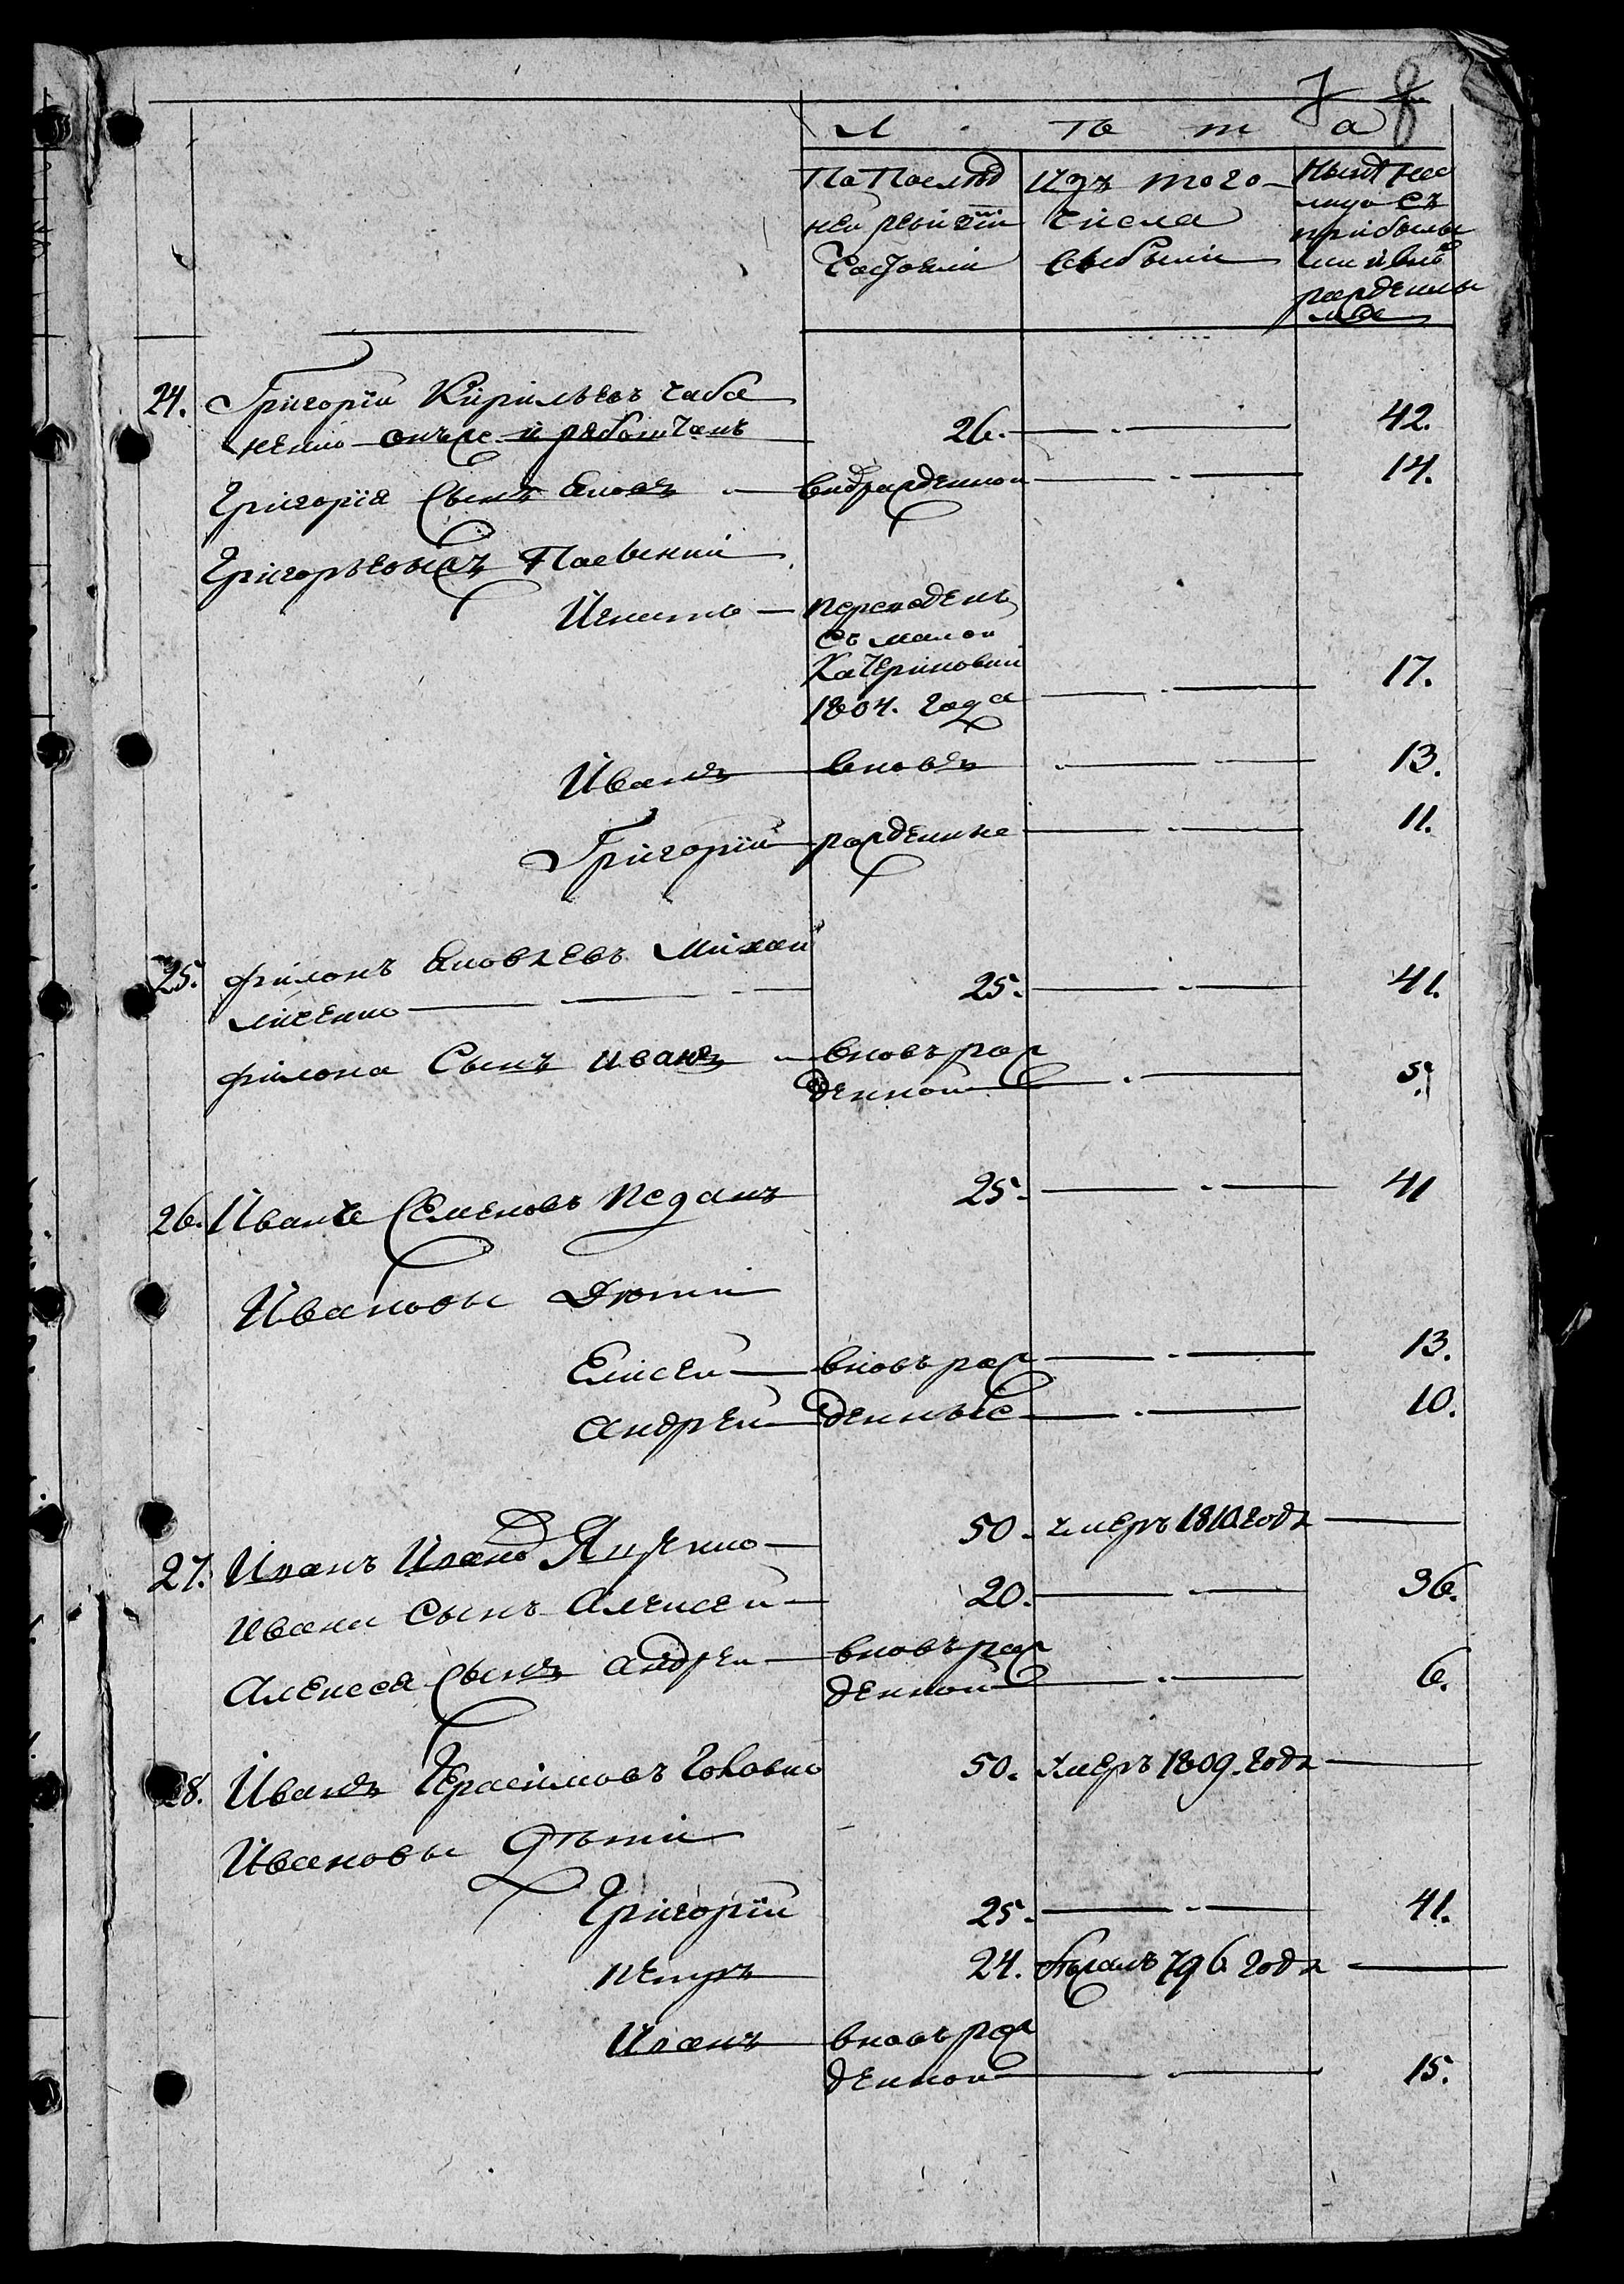 7 8
Л ѣ т а
По Послѣд
ней ревизіи
Состояли
Изъ того
числа
выбыли
Нынѣ нал
лицо съ
прибылы
ми и внов
рожденны
ми
24. Григорій Кирильевъ Чаба
ненко онъ же и рябошапъ 26. 42.
Григорія Сынъ Яковъ внврожденной 14.
Григорьевыхъ Пасынки
Игнатъ переведенъ
съ малой
Катериновки
1804. года 17.
Иванъ вновь 13.
Григорій рожденные 11.
25. Филонъ Яковлевъ Михай
личенко 25. 41.
Филона Сынъ Иванъ вновь рож
денной 5.
26. Иванъ Семеновъ Педанъ 25. 41
Ивановы Дѣти
Елисей вновь рож 13.
Андрей денные 10.
27. Иванъ Иванов Яценко 50. умеръ 1810. года
Ивана Сынъ Алексей 20. 36.
Алексея Сынъ Андрей вновь рож
денной 6.
28. Иванъ Герасимовъ Головко 50. умеръ 1809. года
Ивановы Дѣти
Григорій 25. 41.
Петръ 24. бѣжалъ 796. года
Иванъ вновь рож
денной 15.